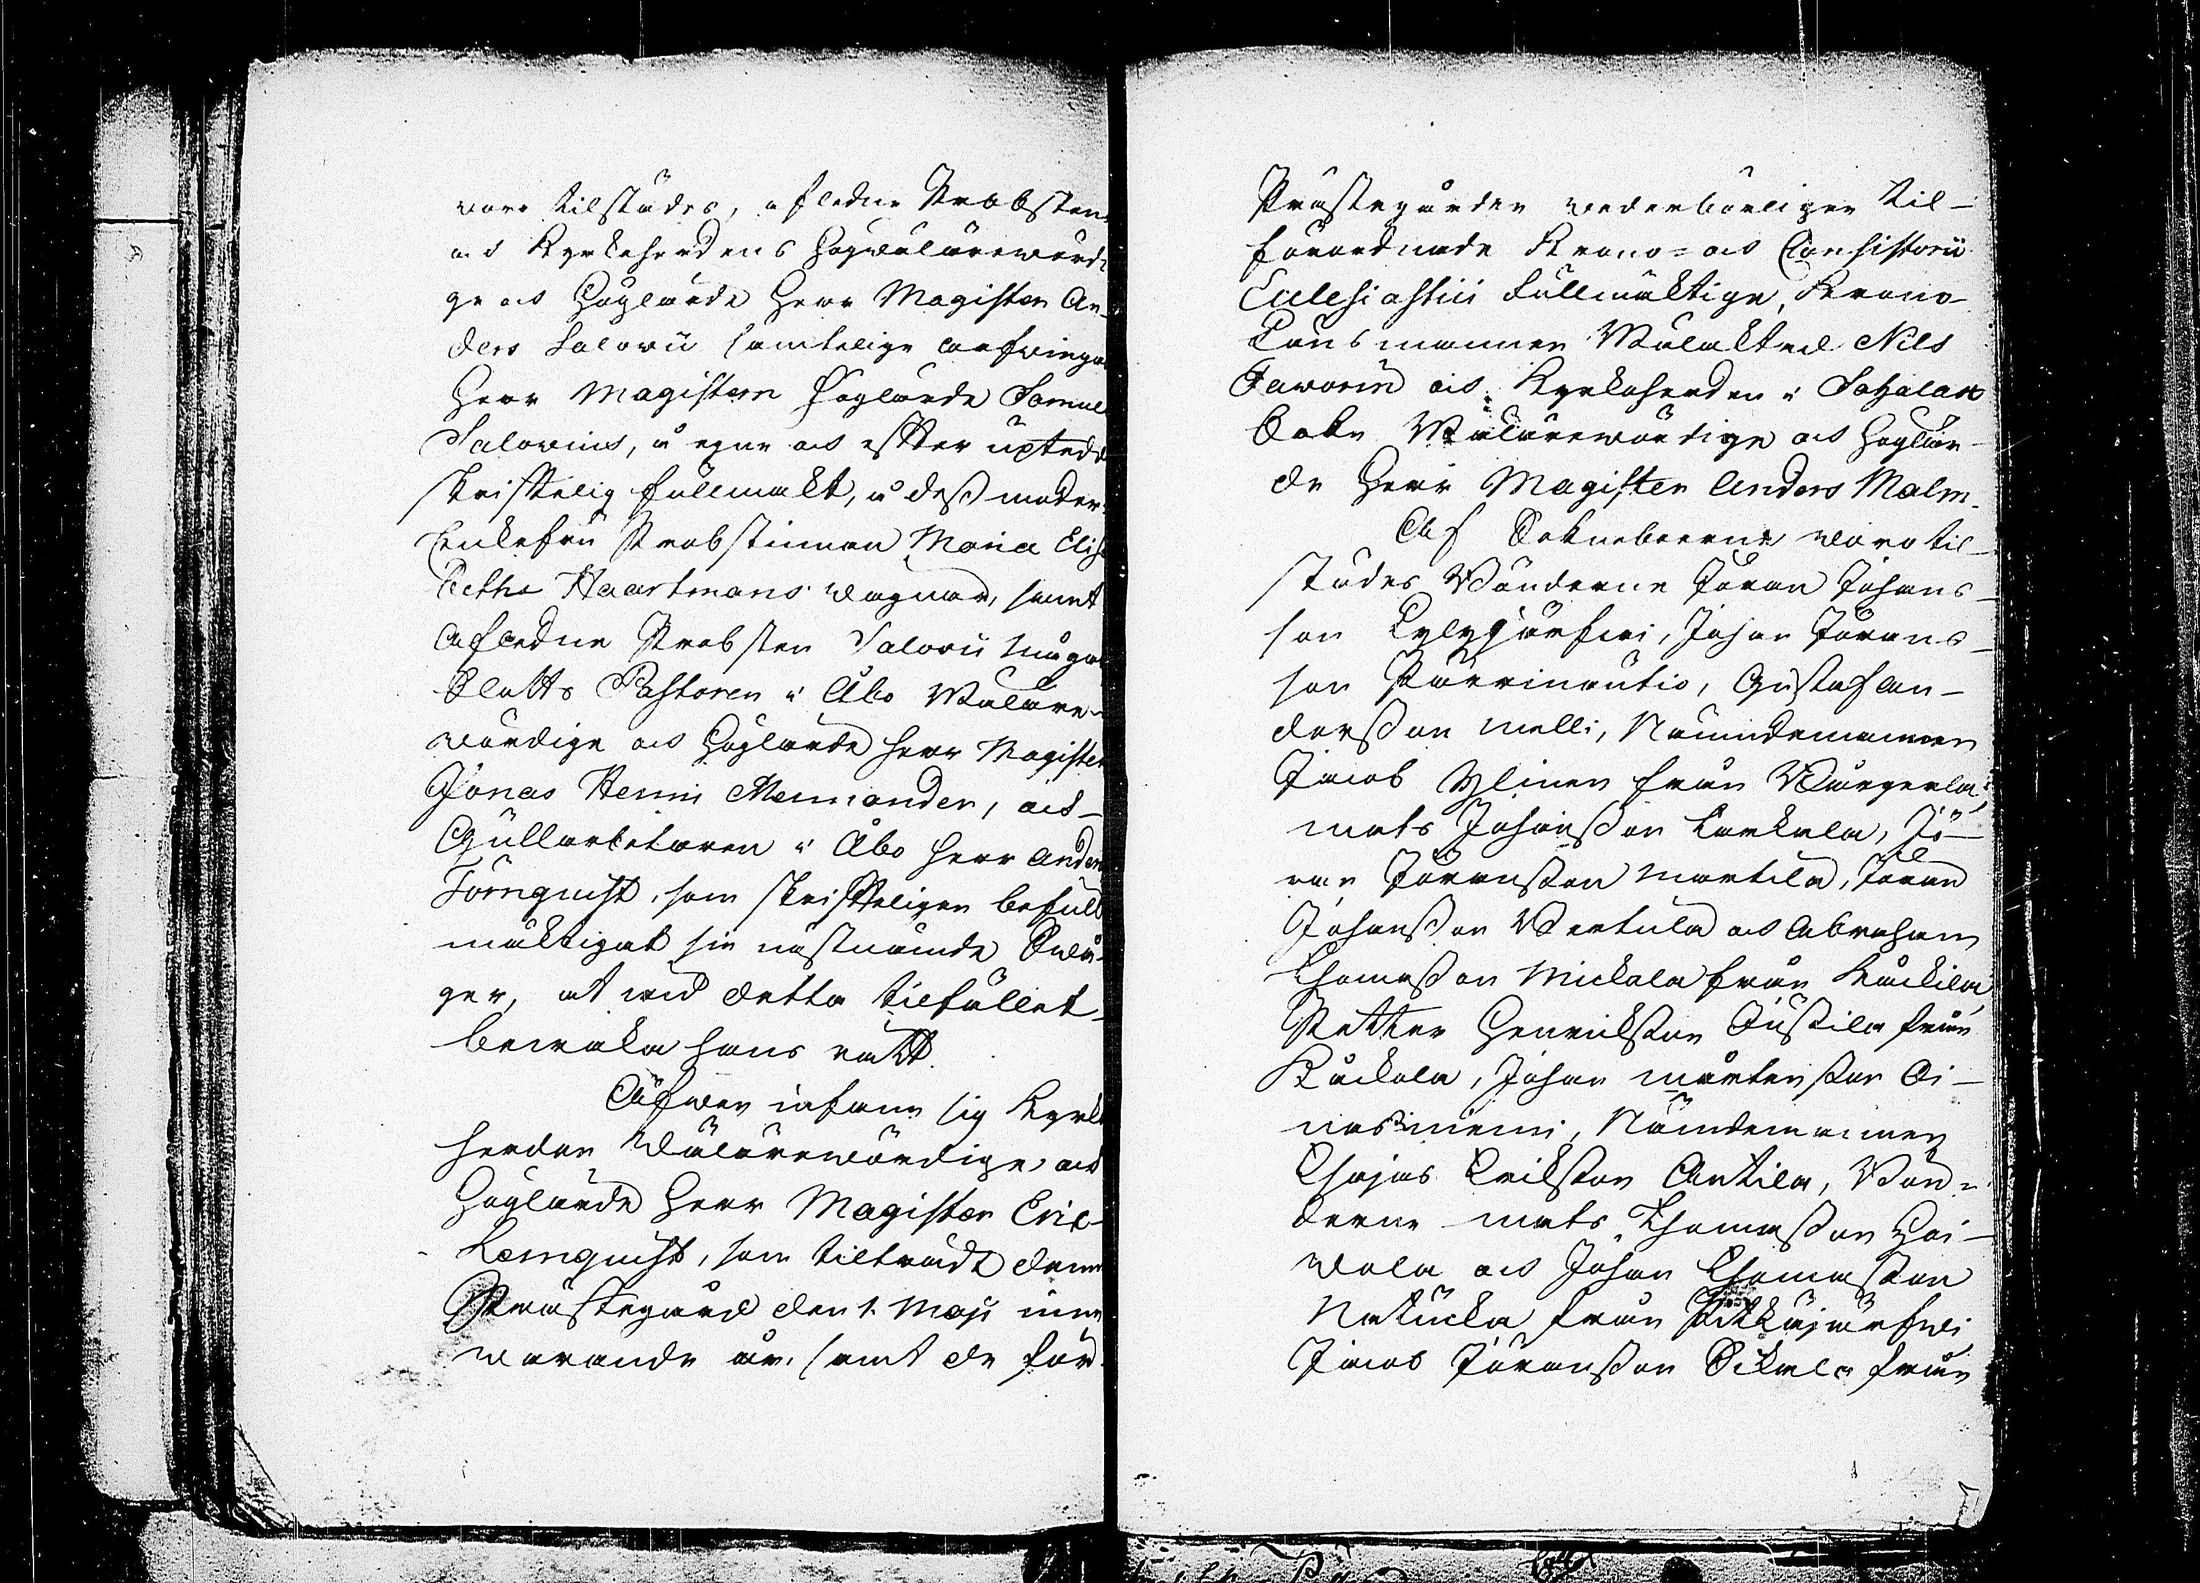 woro tilstädes, afledne Probsten
och Kyrkoherdens Högwälärewördi
ge och Höglärde Herr Magister An-
ders Salovii samtelige arfwingar
Herr Magistern Höglärde Samuel
Salovius, å egne och efter upted
skriftelig fullmakt, å dess moder
Enkefru Probstinnan Maria Elisa
betha Haartmans wagnar, samt
Afledne Probsten Salovii mågar
Slotts Pastoren i Åbo Wälare-
wördige och Höglärde Herr Magister
Jonas Henric Mennander, och
Gullarbetaren i Åbo Herr Anders
Törnquist, som skrifteligen befull
mäktigat sin nästnämde Swå-
ger, at wid detta tilfället
bewaka hans rätt.
Äfwen infann sig Kyrko
herden Wälärewördige och
Höglärde Herr Magister Eric
Lemquist, som tilträdt denne
Prästegård den 1. Maji inne
warande år, samt de för
Prästegården wederbörligen til-
förordnade Krono- och Consistorii
Ecclesiastici Fullmäktige, Krono
Länsmannen Wälaktad Nils
Favorin och Kyrkoherden i Sahalax
Sokn Wälärewördige och Höglär-
de Herr Magister Anders Malm.
Af Sokneboerne woro til-
städes Bönderne Jöran Johans-
son Kylyjärfwi, Johan Jörans-
son Pärrinautio, Gustaf An-
dersson Melli, Nämndemannen
Jacob Ylinen från Wängerla:
Mats Johansson Karkela, Jö-
ran Jöransson Martila, Jöran
Johansson Bertula och Abraham
Thomasson Mickola från Käckilä
Petter Henricksson Jussila från
Käckola, Johan Mårtensson Ai-
nasniemi, Nämndemannen
Thomas Ericksson Antila, Bön-
derne Mats Thomasson Hei-
wola och Johan Thomasson
Natucka från Pitkäjärfwi
Jacob Jöransson Sikala från